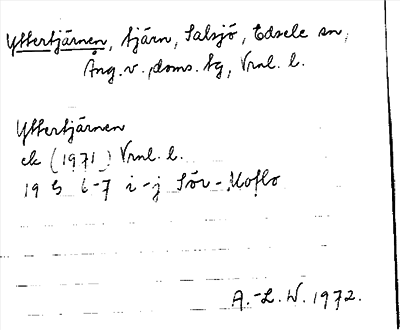 Yttertjärnen, tjärn, Salsjö, Edsele sn,
Ång. v. doms. tg, Vrnl. l.
Yttertjärnen
ek (1971) Vrnl. l.
19 G 6-7 i-j Sör-Moflo
A.-L. W. 1972.